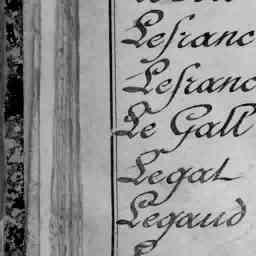 Lefranc
Lefranc
Le Gall
Legat
Legaud